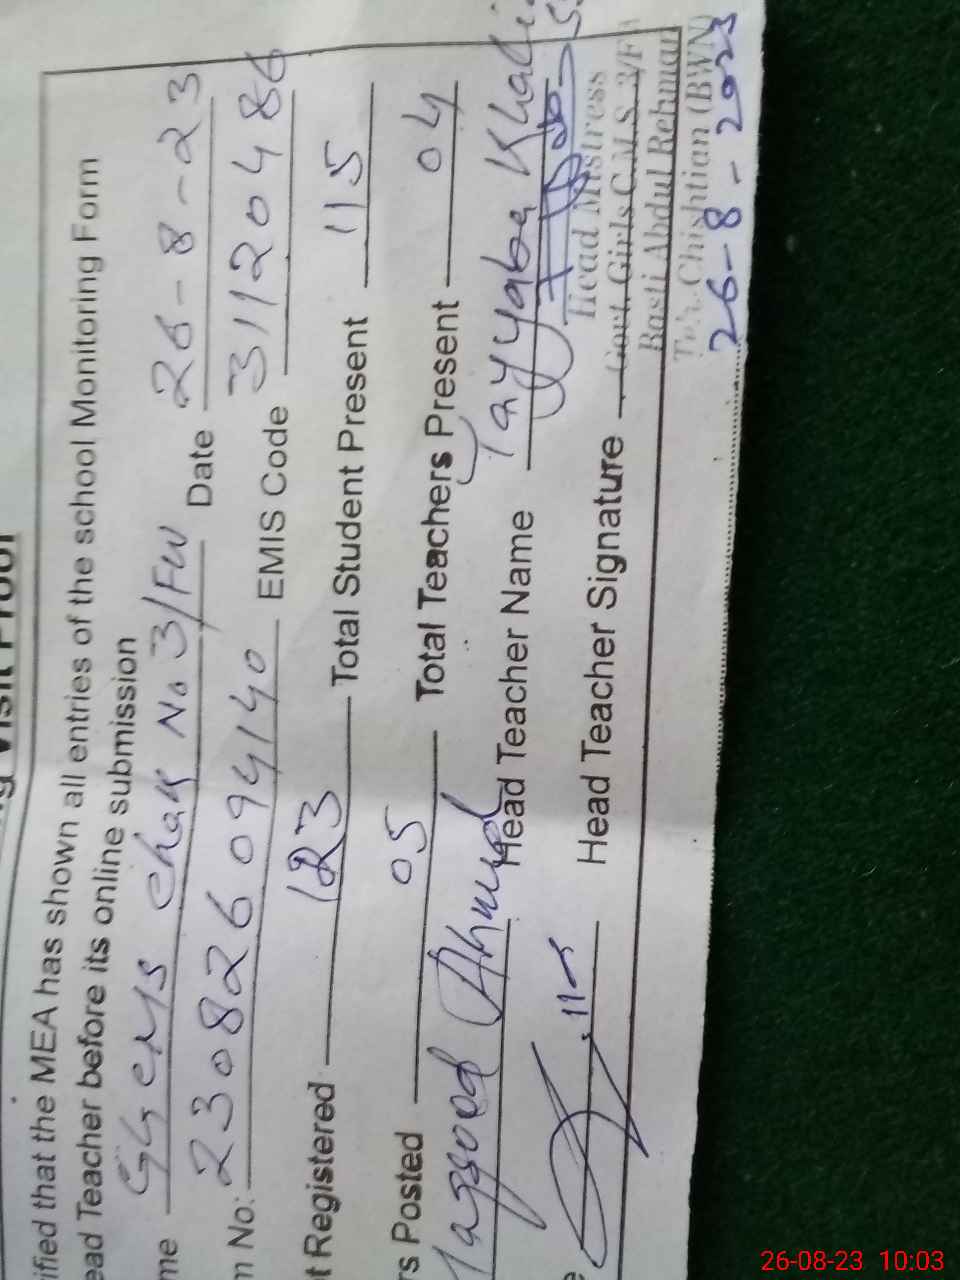 ified that the MEA has shown all entries of the school Monitoring Form
ead Teacher before its online submission
me GGCMS Chak No 3/FW Date 26-8-23
No: 230826094140 EMIS Code 31120486
t Registered 123 Total Student Present 115
rs Posted 05 Total Teachers Present 04
Maqsood Ahmed Head Teacher Name Tayyaba Khali
Head Teacher Signature
Head Mistress
Govt. Girls C.M.S. 3/F
Basti Abdul Rehman
Teh. Chishtian (BWN)
26-8-2023
26-08-23 10:03